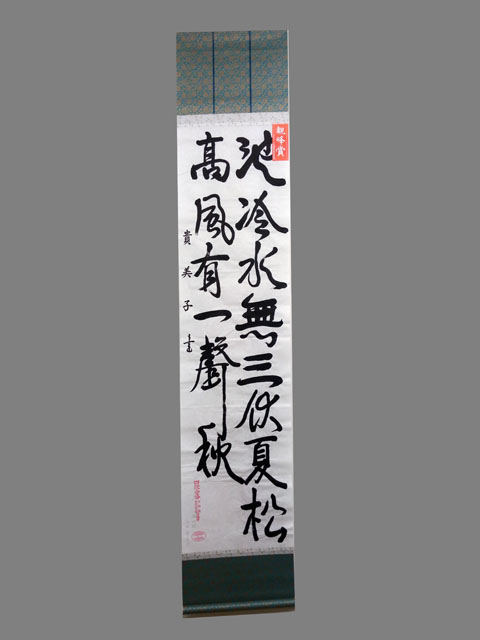 観峰賞
池冷水無三伏夏松
高風有一聲秋
貴美子書